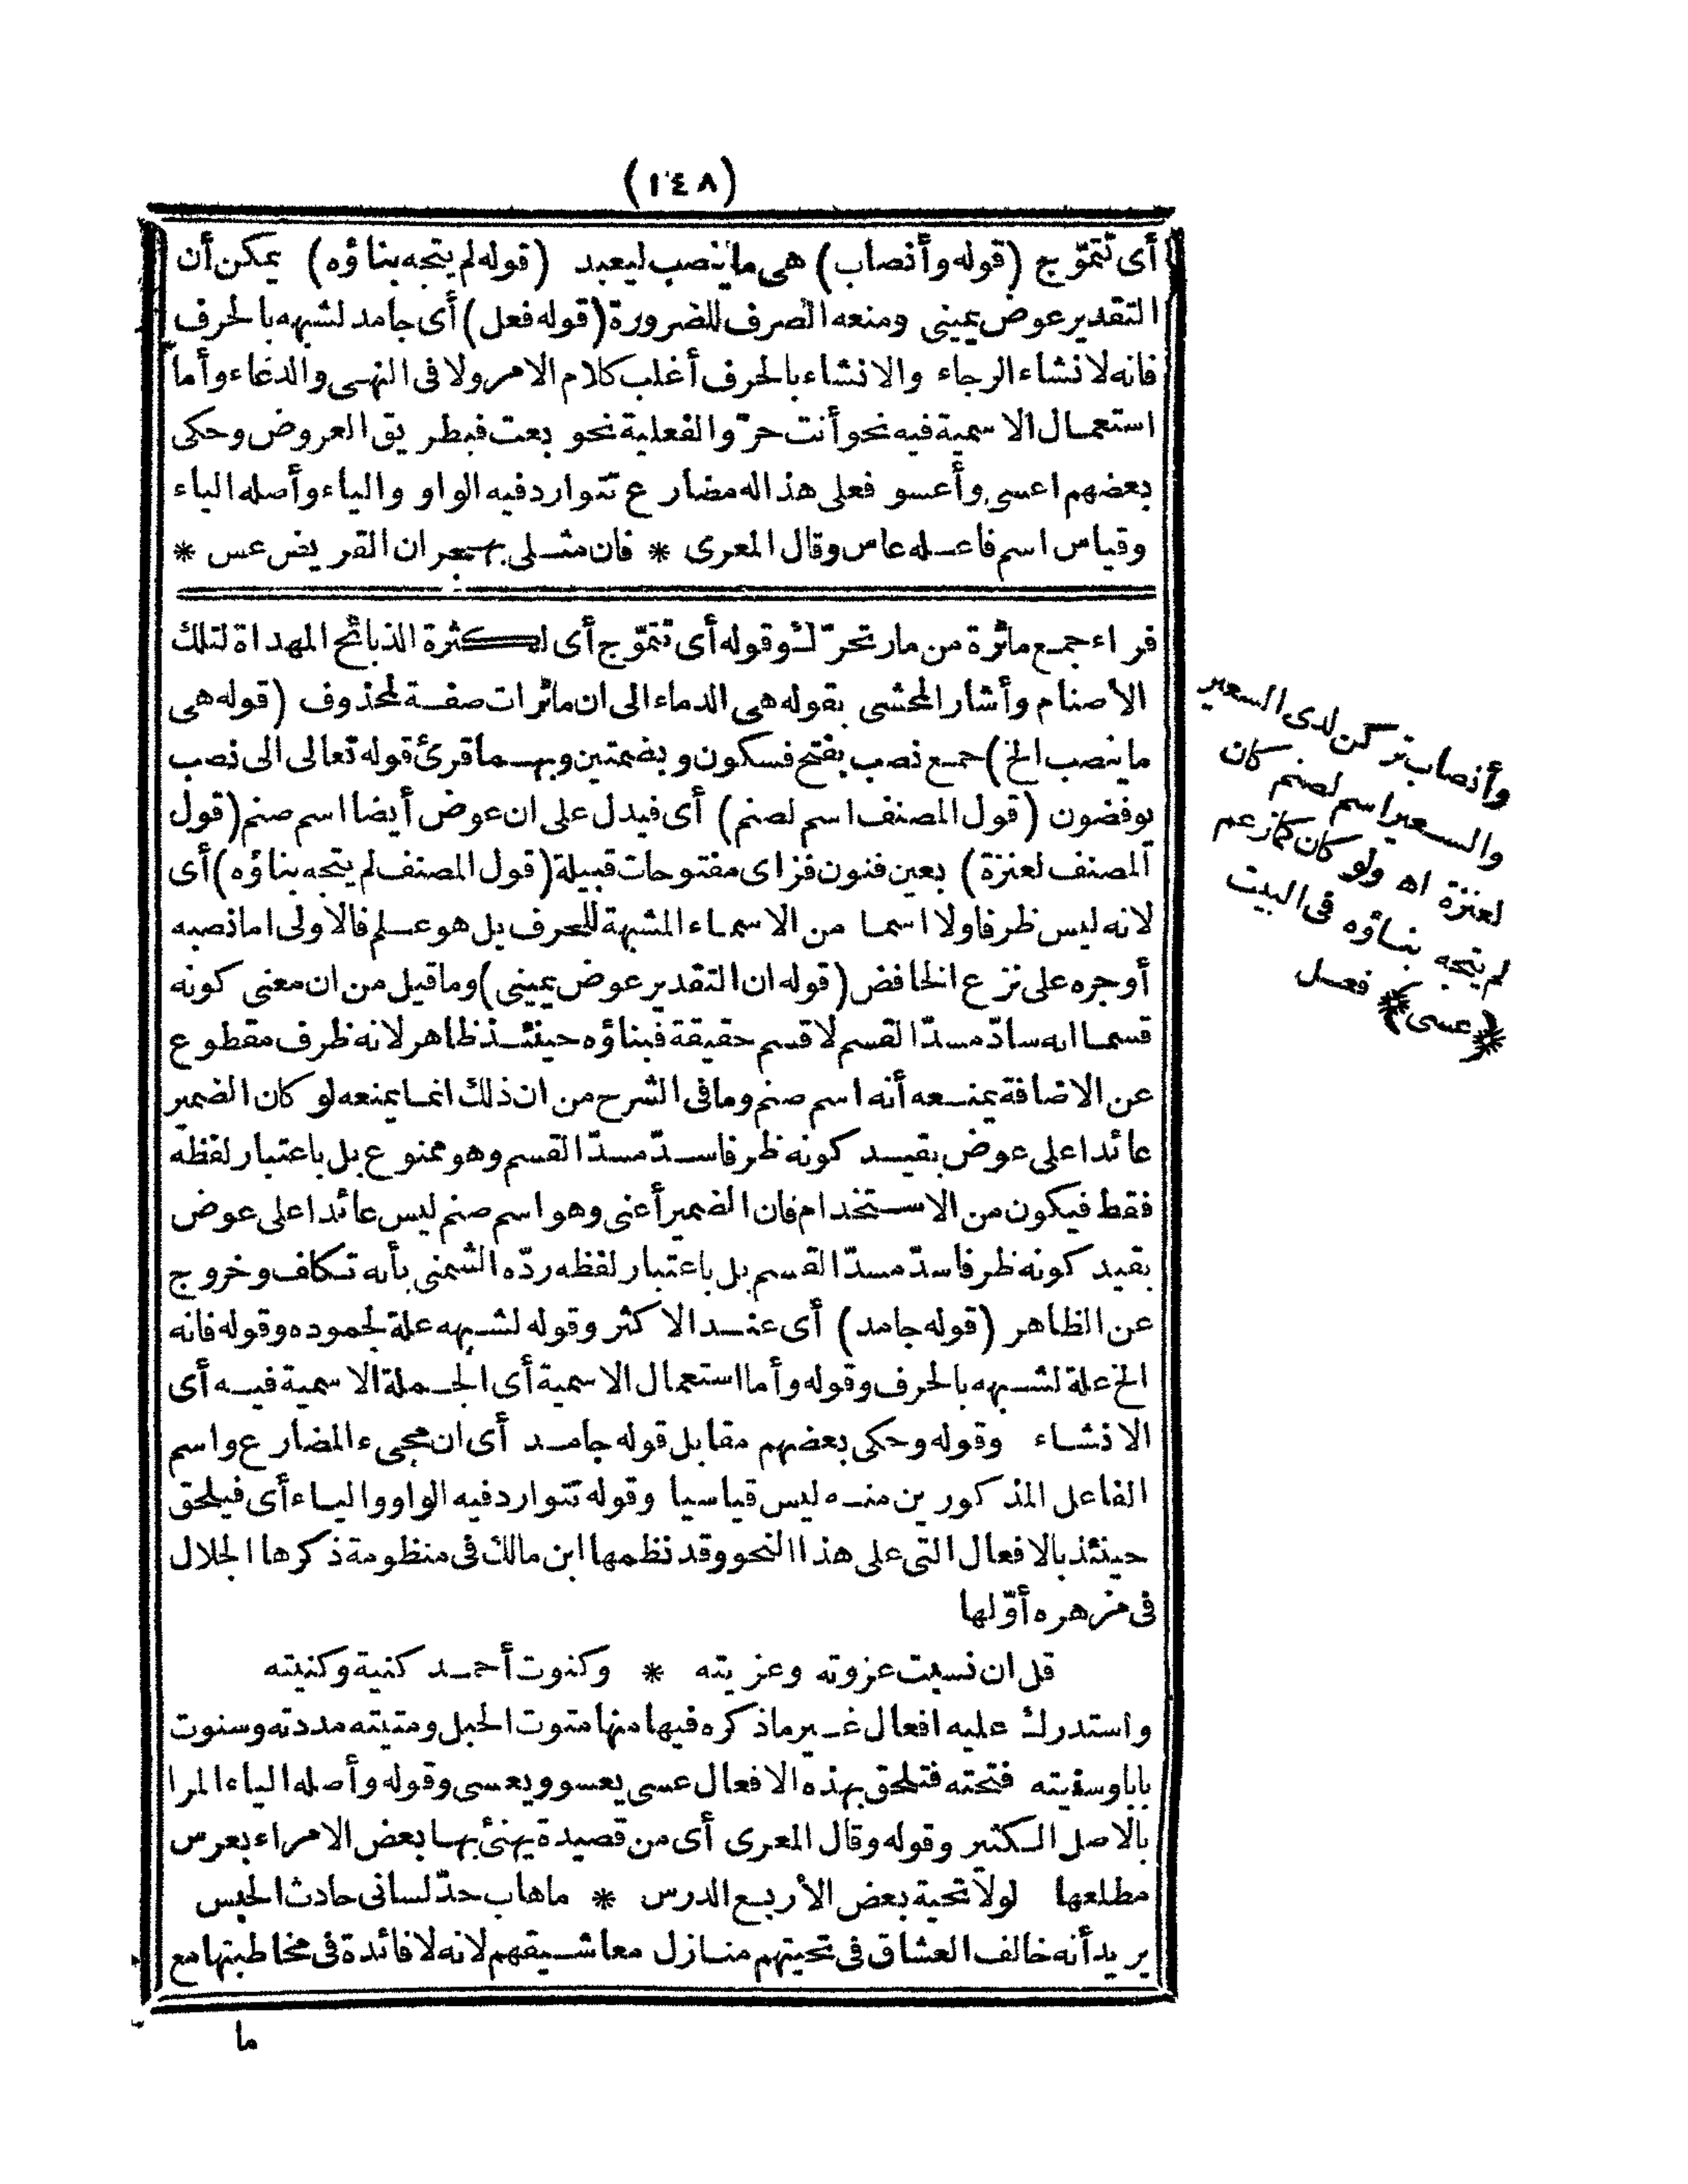 (١٤٨)
أى تتموّج (قوله وأنصاب) هى ما ينصب ليعبد (قوله لم يتجه بناؤه) يمكن أن
التقدير عوض يمينى ومنعه الصرف للضرورة (قوله فعل) أى جامد لشبهه بالحرف
فانه لانشاء الرجاء والانشاء بالحرف أغلب كلام الامر ولا فى النهى والدعاء وأما
استعمال الاسمية فيه نحو أنت حرّ والفعلية نحو بعت فبطريق العروض وحكى
بعضهم اعسى وأعسو فعلى هذا له مضارع تتوارد فيه الواو والياء وأصله الياء
وقياس اسم فاعله عاس وقال المعرى * فان مثلى بهجران القريض عس *
فراء جمع مائرة من مار تحرّك وقوله أى تتموّج أى لكثرة الذبائح المهداة لتلك
الأصنام وأشار المحشى بقوله هى الدماء الى ان مائرات صفة لمحذوف (قوله هى
ما ينصب الخ) جمع نصب بفتح فسكون وبضمتين وبهما قرئ قوله تعالى الى نصب
يوفضون (قول المصنف اسم لصنم) أى فيدل على ان عوض أيضا اسم صنم (قول
المصنف لعنزة) بعين فنون فزاى مفتوحات قبيلة (قول المصنف لم يتجه بناؤه) أى
لانه ليس ظرفا ولا اسما من الاسماء المشبهة للحرف بل هو علم فالأولى اما نصبه
أو جره على نزع الخافض (قوله ان التقدير عوض يمينى) وما قيل من ان معنى كونه
قسما انه سادّ مسدّ القسم لا قسم حقيقة فبناؤه حينئذ ظاهر لانه ظرف مقطوع
عن الاضافة يمنعه أنه اسم صنم وما فى الشرح من ان ذلك انما يمنعه لو كان الضمير
عائدا على عوض بقيد كونه ظرفا سدّ مسدّ القسم وهو ممنوع بل باعتبار لفظه
فقط فيكون من الاستخدام فان الضمير أعنى وهو اسم صنم ليس عائدا على عوض
بقيد كونه ظرفا سدّ مسدّ القسم بل باعتبار لفظه ردّه الشمنى بأنه تكلف وخروج
عن الظاهر (قوله جامد) أى عند الاكثر وقوله لشبهه علة لجموده وقوله فانه
الخ علة لشبهه بالحرف وقوله وأما استعمال الاسمية أى الجملة الاسمية فيه أى
الانشاء وقوله وحكى بعضهم مقابل قوله جامد أى ان مجىء المضارع واسم
الفاعل المذكورين منه ليس قياسيا وقوله تتوارد فيه الواو والياء أى فيلحق
حينئذ بالافعال التى على هذا النحو وقد نظمها ابن مالك فى منظومة ذكرها الجلال
فى مزهره أوّلها
قل ان نسبت عزوته وعزيته * وكنوت أحمد كنية وكنيته
واستدرك عليه افعال غير ما ذكره فيها منها متوت الحبل ومتيته مددته وسنوت
بابا وسنيته فتحته فتلحق بهذه الافعال عسى يعسو ويعسى وقوله وأصله الياء المرا
بالاصل الكثير وقوله وقال المعرى أى من قصيدة يهنئ بها بعض الامراء بعرس
مطلعها لولا تحية بعض الأربع الدرس * ما هاب حدّ لسانى حادث الحبس
يريد أنه خالف العشاق فى تحيتهم منازل معاشيقهم لانه لا فائدة فى مخاطبتها مع
ما
وأنصاب تركن لدى السعير
والسعير اسم لصنم كان
لعنزة اه ولو كان كما زعم
لم يتجه بناؤه فى البيت
*(عسى)* فعل